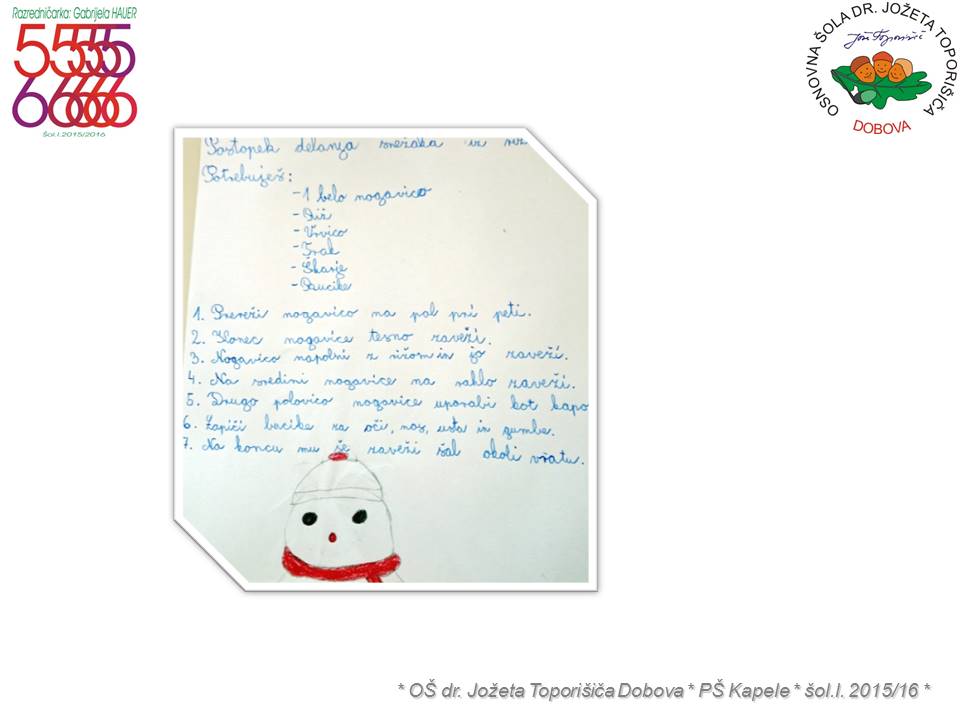 Razredničarka: Gabrijela HAUER
55555
66666
Šol.l.2015/2016
OSNOVNA ŠOLA DR. JOŽETA TOPORIŠIČA
Jože Toporišič
DOBOVA
Postopek delanja snežaka iz
Potrebuješ:
- 1 belo nogavico
- Riž
- Vrvico
- Trak
- Škarje
- Bucike
1. Prereži nogavico na pol pri peti.
2. Konec nogavice tesno zaveži.
3. Nogavico napolni z rižom in jo zaveži.
4. Na sredini nogavice na rahlo zaveži.
5. Drugo polovico nogavice uporabi kot kapo
6. Zapiči bucike za oči, nos, usta in gumbe.
7. Na koncu mu še zaveži šal okoli vratu.
* OŠ dr. Jožeta Toporišiča Dobova * PŠ Kapele * šol.l. 2015/16 *